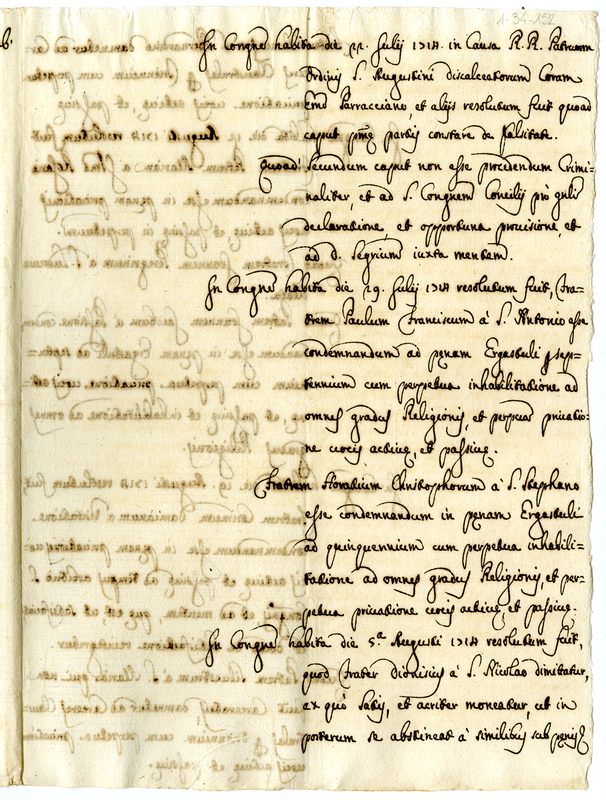 1-34-152
In Congne habita die 22. Julij 1718. in Causa R.R. Patrum
Ordinis S. Augustini discalceatorum Coram
Emo Parracciano, et alijs resolutum fuit quoad
caput pmæ partis constare de falsitate.
Quoad secundum caput non esse procedendum Crimi-
naliter, et ad S. Congnem Concilij prò gnli
declaratione, et opportuna provisione, et
ad d. Segrium iuxta mentem.
In Congne habita die 29. Julij 1718 resolutum fuit, Fra-
trem Paulum Franciscum à S. Antonio esse
condemnandum ad pænam Ergastuli p sep-
tennium cum perpetua inhabilitatione ad
omnes gradus Religionis, et perpetua privatio-
ne vocis activæ, et passivæ.
Fratrem Horatium Christophorum à S. Stephano
esse condemnandum in pænam Ergastuli
ad quinquennium cum perpetua inhabili-
tatione ad omnes gradus Religionis, et per-
petua privatione vocis activæ, et passivæ.
In Congne habita die 5.a Augusti 1718 resolutum fuit,
quod Frater dionisius à S. Nicolao dimittatur,
ex quò satis, et acriter moneatur, ut in
posterum se abstineat à similibus sub pænis